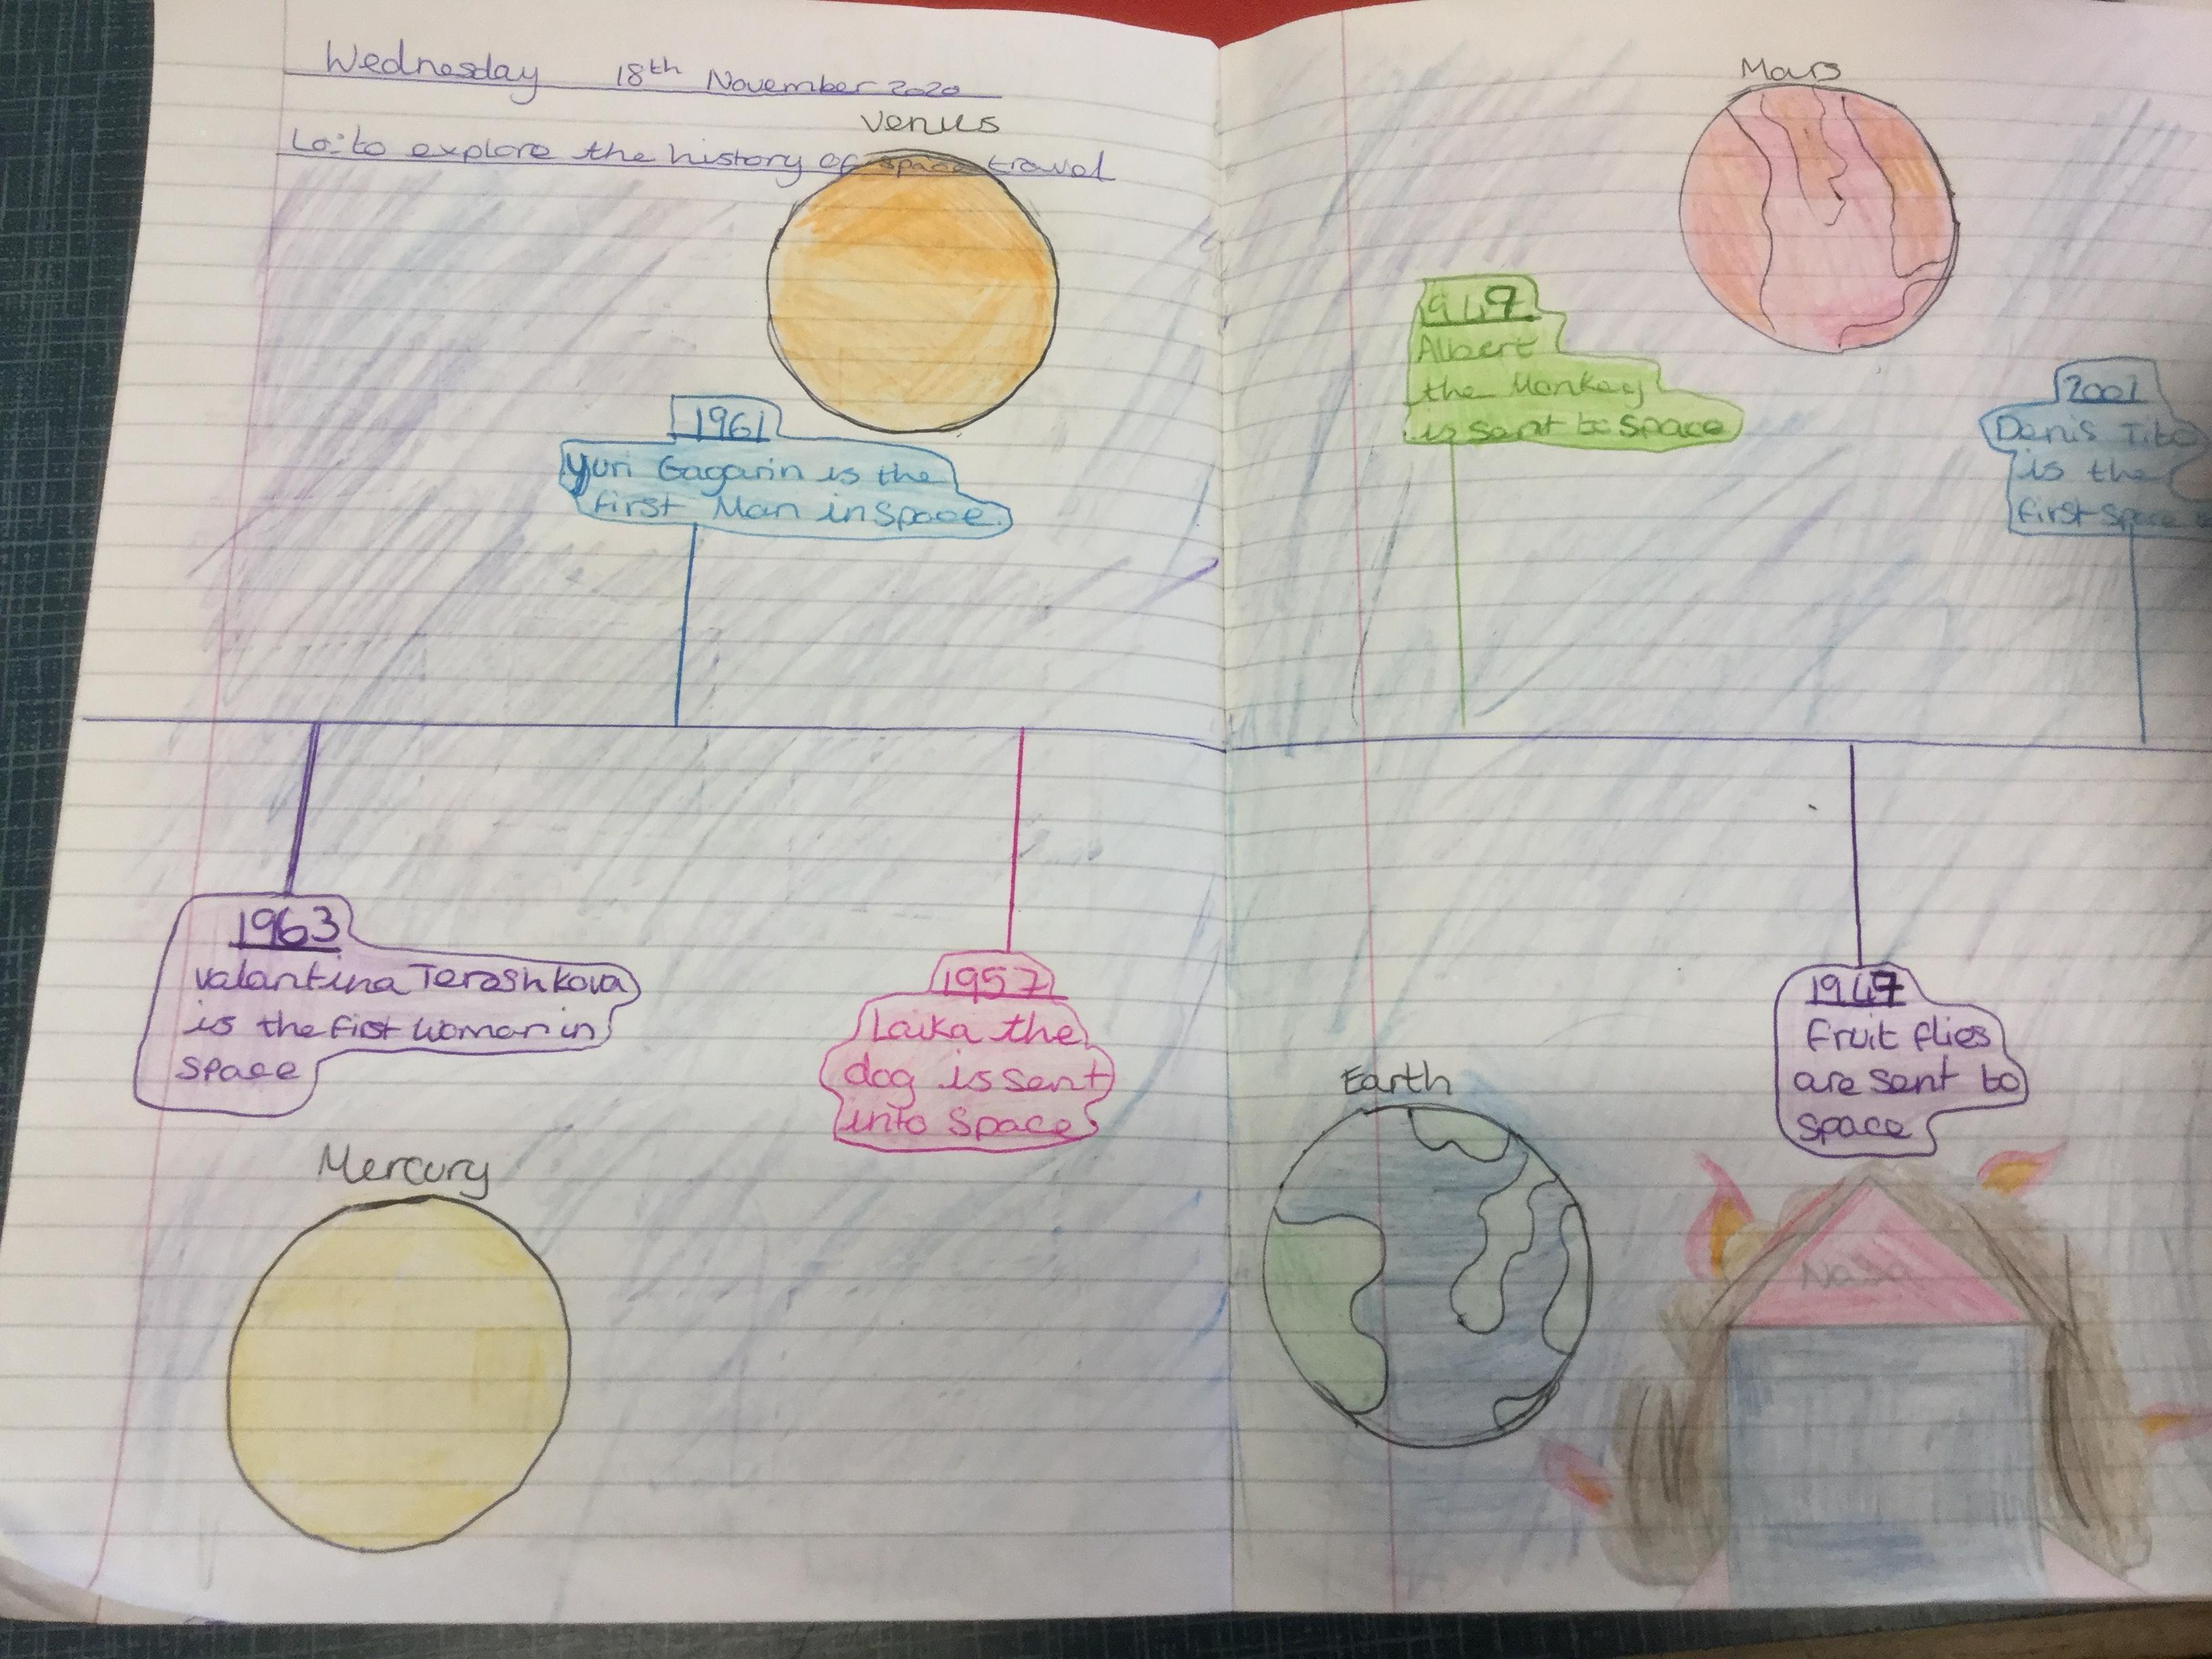 Wednesday 18th November 2020
Lo: to explore the history of space travel
Venus
1961
Yuri Gagarin is the
first Man in Space.
1963
Valantina Tereshkova
is the first woman in
space
1957
Laika the
dog is sent
into Space
Mercury
Mars
Albert
the Monkey
is sent to Space
2001
Denis Tito
is the
first Space
1947
Fruit flies
are sent to
space
Earth
Nasa